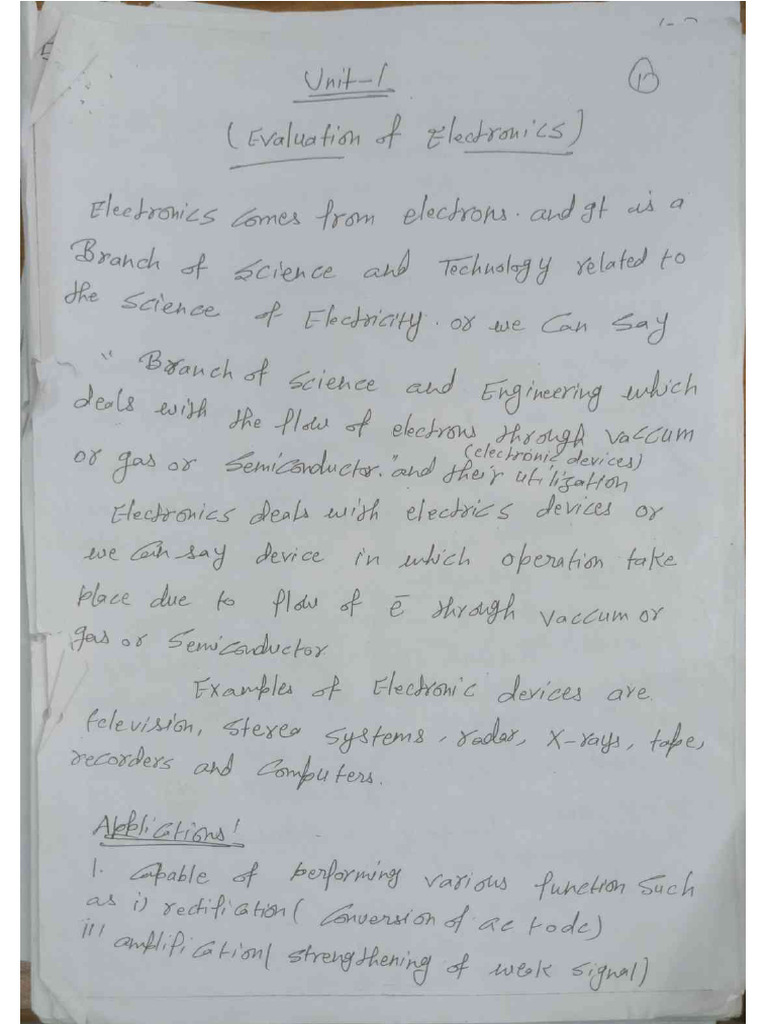 Unit-1
(Evaluation of Electronics)
Electronics comes from electrons. and It is a
Branch of Science and Technology related to
the Science of Electricity. or we Can Say
" Branch of Science and Engineering which
deals with the flow of electrons through Vaccum
(electronic devices)
or gas or Semiconductor." and their utilization
Electronics deals with electrics devices or
we Can say device in which operation take
place due to flow of ē through Vaccum or
gas or Semiconductor
Examples of Electronic devices are
television, Stereo Systems, radar, X-rays, tape,
recorders and Computers.
Applications!
1. Capable of performing various function Such
as i) rectification ( Conversion of ac to dc)
ii) amplification ( strengthening of weak signal)